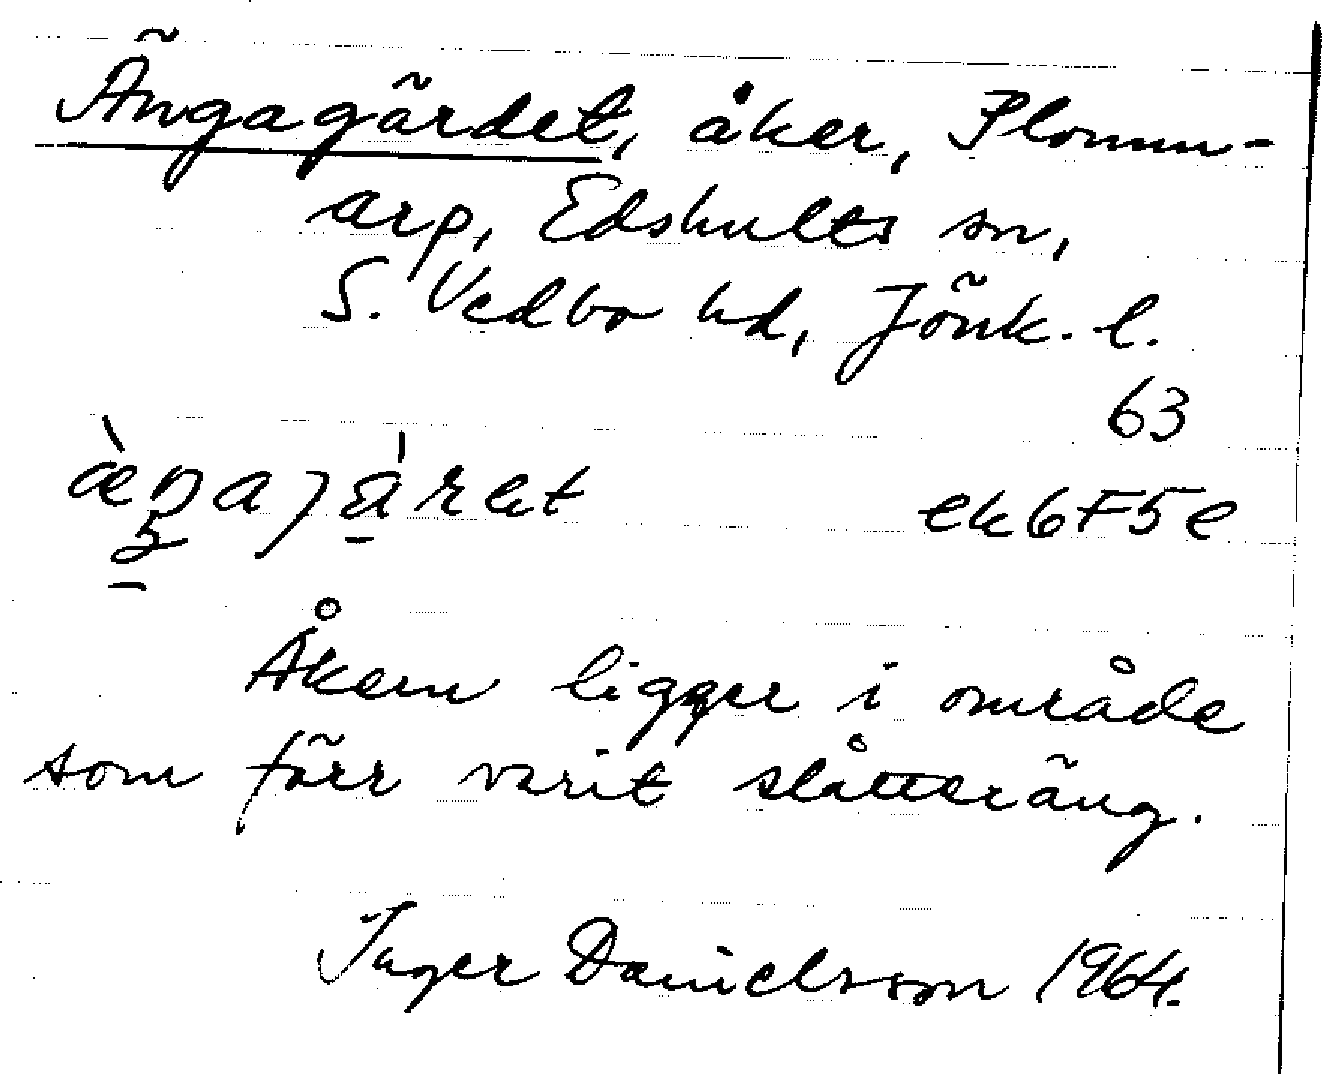 Ängagärdet, åker, Plomm-
arp, Edshults sn,
S. Vedbo hd, Jönk. l.
63
ek6F5e
Åkern ligger i område
som förr varit slåtteräng.
Inger Danielsson 1964.